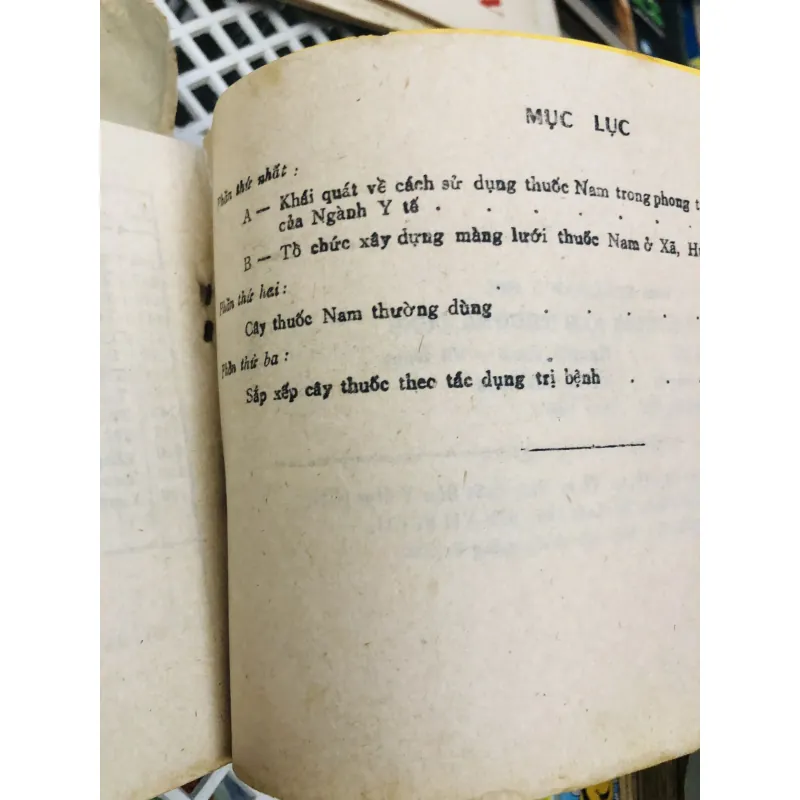 MỤC LỤC
Phần thứ nhất :
A — Khái quát về cách sử dụng thuốc Nam trong phong t
của Ngành Y tế . . . . . . .
B — Tồ chức xây dựng màng lưới thuốc Nam ở Xã, H
Phần thứ hai :
Cây thuốc Nam thường dùng . . . . . .
Phần thứ ba :
Sắp xếp cây thuốc theo tác dụng trị bệnh . . .